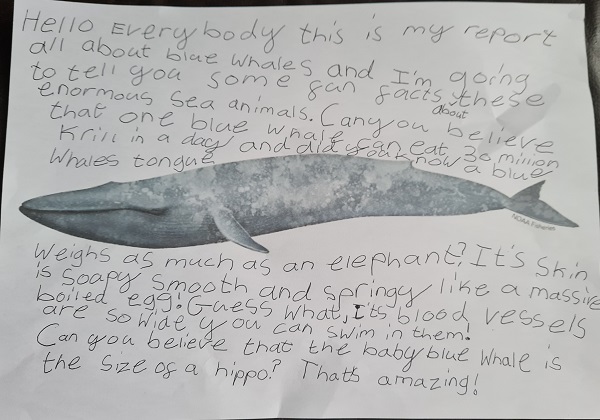 Hello Everybody this is my report
all about blue whales and I'm going
to tell you some fun facts about these
enormous sea animals. Can you believe
that one blue whale can eat 30 million
Krill in a day and did you know a blue
Whales tongue
NOAA Fisheries
Weighs as much as an elephant? It's skin
is soapy smooth and springy like a massive
boiled egg! Guess what, It's blood vessels
are so wide you can swim in them!
Can you believe that the baby blue Whale is
the size of a hippo? That's amazing!